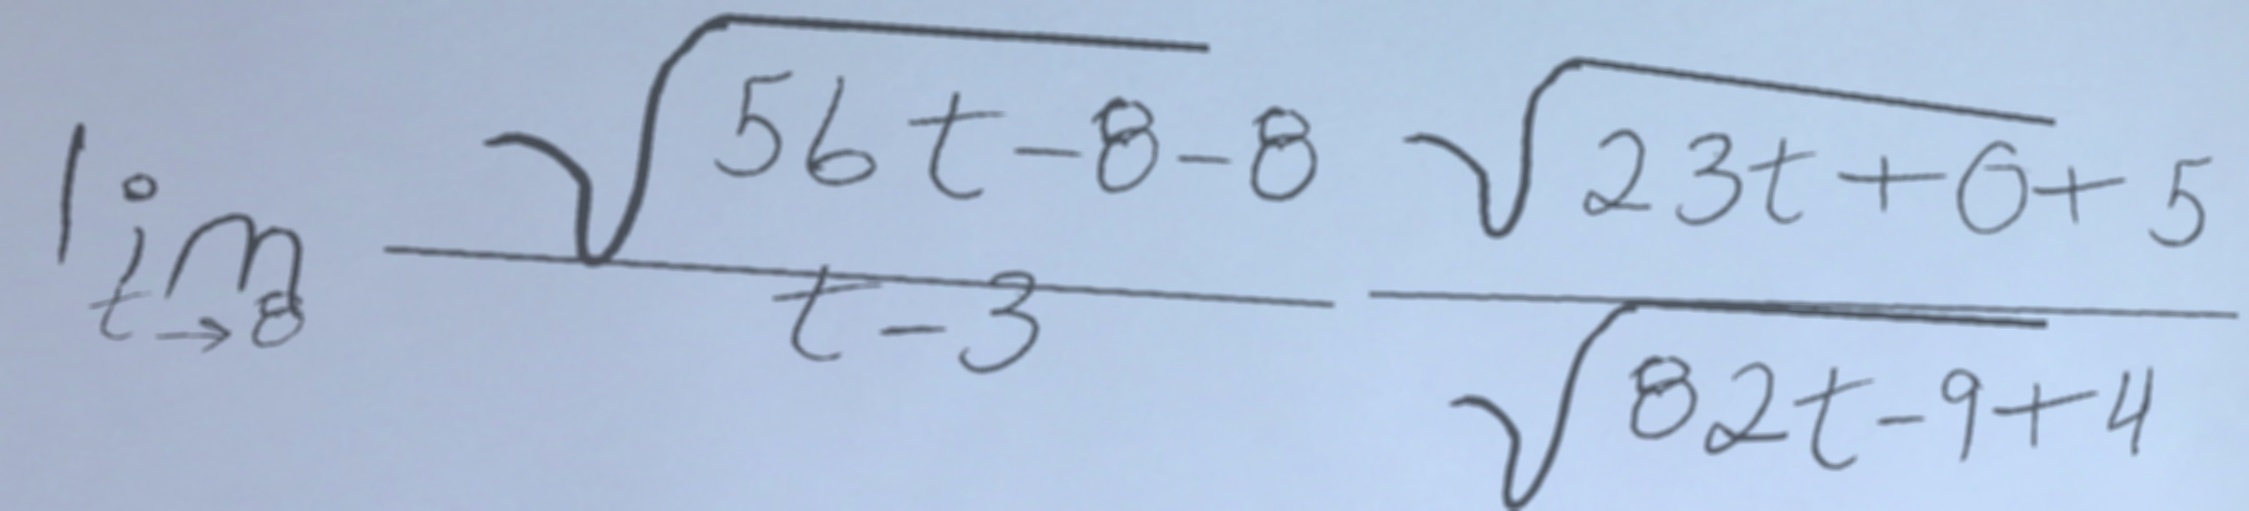 \lim_{t \to 8} \frac{\sqrt{56t-8}-8}{t-3} \frac{\sqrt{23t+0}+5}{\sqrt{82t-9}+4}